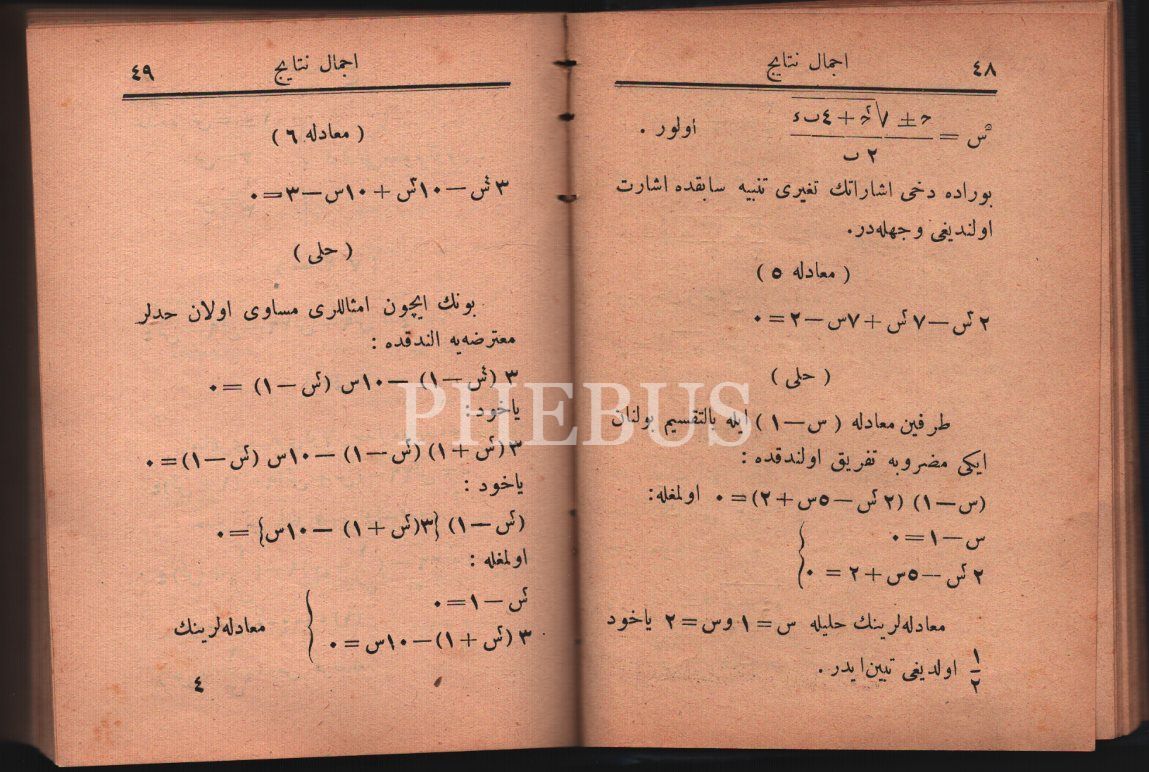 ٤٨
اجمال نتايج
اولور .
٢ ب
بوراده دخى اشاراتك تغيرى تنبيه سابقده اشارت
اولنديغى وجهله‌در.
( معادله ٥ )
٢ س٣ — ٧ س٢ + ٧س — ٢ = ٠
( حلى )
طرفين معادله ( س — ١ ) ايله بالتقسيم بولنان
ايكى مضروبه تفريق اولندقده :
(س — ١) (٢ س٢ — ٥س + ٢) = ٠ اولمغله:
س — ١ = ٠
٢ س٢ — ٥س + ٢ = ٠
معادله‌لرينك حليله س = ١ وس = ٢ ياخود
١/٢ اولديغى تبين ايدر .
اجمال نتايج
٤٩
( معادله ٦ )
٣ س٤ — ١٠س٣ + ١٠س — ٣ = ٠
( حلى )
بونك ايچون امثاللرى مساوى اولان حدلر
معترضه‌يه الندقده :
٣ (س٤ — ١) — ١٠س (س٢ — ١) = ٠
ياخود:
٣(س٢ + ١) (س٢ — ١) — ١٠س (س٢ — ١) = ٠
ياخود :
(س٢ — ١) {٣(س٢ + ١) — ١٠س} = ٠
اولمغله :
س٢ — ١ = ٠
٣ (س٢ + ١) — ١٠س = ٠
معادله‌لرينك
٤
PHEBUS